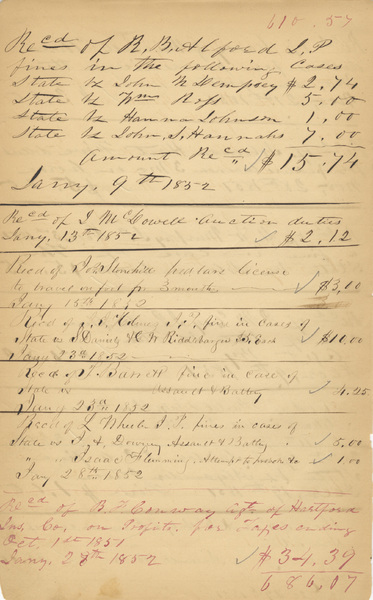 610.57
Recd of R. B. Alford J. P
fines in the following Cases
State vs John N Dempsey $2.74
State vs Wm Ross 5.00
State vs Hanna Johnson 1.00
State vs John S. Hannahs 7.00
Amount Recd " $15.74
Jany. 9th 1852
Recd of J McDowell Auction duties
Jany. 13th 1852 $2.12
Recd of Jos pedlars license
to travel on foot for 3 months $3.10
Jany 15th 1852
Recd of J. P. fine in cases of
State vs & $10.00
Jany 23th 1852
Recd of J. Barrett fine in case of
State vs Assault & Battery 4.25
Jany 23rd 1852
Recd of J. P. fines in cases of
State vs J. H. Downey Assault & Battery 5.00
" vs Isaac Flemming, Attempt to 1.00
Jay 28th 1852
Recd of B. F. Conway agt of Hartford
Ins. Co. on Profits for Taxes ending
Oct. 1st 1851
Jany. 29th 1852 $34.39
686.07